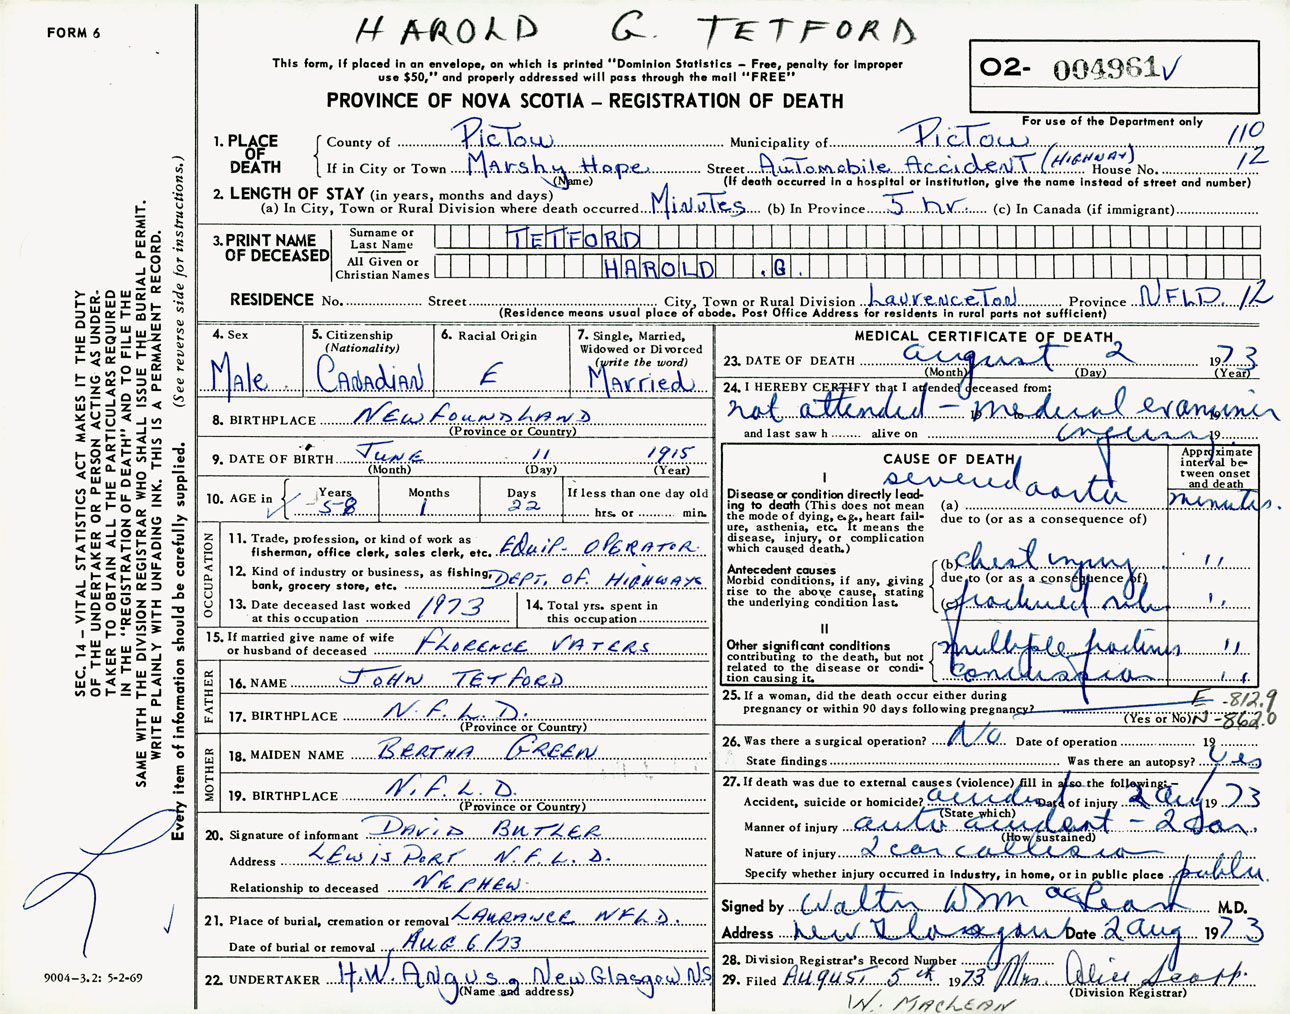 FORM 6
HAROLD G. TETFORD
This form, if placed in an envelope, on which is printed "Dominion Statistics – Free, penalty for improper
use $50," and properly addressed will pass through the mail "FREE"
PROVINCE OF NOVA SCOTIA – REGISTRATION OF DEATH
O2- 004961 ✓
For use of the Department only
110
1. PLACE OF DEATH County of Pictou Municipality of Pictou
If in City or Town Marshy Hope Street Automobile Accident (Highway) House No. 12
(Name) (If death occurred in a hospital or institution, give the name instead of street and number)
2. LENGTH OF STAY (in years, months and days)
(a) In City, Town or Rural Division where death occurred Minutes (b) In Province 5 hr (c) In Canada (if immigrant)
3. PRINT NAME OF DECEASED Surname or Last Name TETFORD
All Given or Christian Names HAROLD .G.
RESIDENCE No. Street City, Town or Rural Division Laurenceton Province NFLD 12
(Residence means usual place of abode. Post Office Address for residents in rural parts not sufficient)
4. Sex Male
5. Citizenship (Nationality) Canadian
6. Racial Origin E
7. Single, Married, Widowed or Divorced (write the word) Married
8. BIRTHPLACE Newfoundland
(Province or Country)
9. DATE OF BIRTH June 11 1915
(Month) (Day) (Year)
10. AGE in Years 58 Months 1 Days 22 If less than one day old hrs. or min.
OCCUPATION
11. Trade, profession, or kind of work as
fisherman, office clerk, sales clerk, etc. Equip- Operator
12. Kind of industry or business, as fishing,
bank, grocery store, etc. Dept. of Highways
13. Date deceased last worked
at this occupation 1973
14. Total yrs. spent in
this occupation
15. If married give name of wife
or husband of deceased Florence Vaters
FATHER
16. NAME John Tetford
17. BIRTHPLACE N.F.L.D.
(Province or Country)
MOTHER
18. MAIDEN NAME Bertha Green
19. BIRTHPLACE N.F.L.D.
(Province or Country)
20. Signature of informant David Butler
Address Lewisport N.F.L.D.
Relationship to deceased Nephew
21. Place of burial, cremation or removal Laurance NFLD.
Date of burial or removal Aug 6/73
22. UNDERTAKER H.W. Angus, New Glasgow NS
(Name and address)
MEDICAL CERTIFICATE OF DEATH
23. DATE OF DEATH august 2 1973
(Month) (Day) (Year)
24. I HEREBY CERTIFY that I attended deceased from:
not attended – medical examiner
and last saw h alive on 19
CAUSE OF DEATH
Approximate interval between onset and death
I
Disease or condition directly leading to death (This does not mean the mode of dying, e.g., heart failure, asthenia, etc. It means the disease, injury, or complication which caused death.)
(a) severed aorta minutes.
due to (or as a consequence of)
Antecedent causes
Morbid conditions, if any, giving rise to the above cause, stating the underlying condition last.
(b) chest injury "
due to (or as a consequence of)
(c) fractured ribs "
II
Other significant conditions
contributing to the death, but not related to the disease or condition causing it.
multiple fractures "
concussion "
25. If a woman, did the death occur either during
pregnancy or within 90 days following pregnancy?
(Yes or No)
E -812.9
N -862.0
26. Was there a surgical operation? No Date of operation 19
State findings Was there an autopsy? Yes
27. If death was due to external causes (violence) fill in also the following:–
Accident, suicide or homicide? accident Date of injury 2 Aug 1973
(State which)
Manner of injury auto accident – 2 car.
(How sustained)
Nature of injury 2 car collision
Specify whether injury occurred in industry, in home, or in public place public.
Signed by Walter W MacLean M.D.
Address New Glasgow Date 2 aug 1973
28. Division Registrar's Record Number 9
29. Filed August 5th 1973 Mrs. Alice
(Division Registrar)
W. MacLean
SEC. 14 – VITAL STATISTICS ACT MAKES IT THE DUTY
OF THE UNDERTAKER OR PERSON ACTING AS UNDER-
TAKER TO OBTAIN ALL THE PARTICULARS REQUIRED
IN THE "REGISTRATION OF DEATH" AND TO FILE THE
SAME WITH THE DIVISION REGISTRAR WHO SHALL ISSUE THE BURIAL PERMIT.
WRITE PLAINLY WITH UNFADING INK. THIS IS A PERMANENT RECORD.
Every item of information should be carefully supplied. (See reverse side for instructions.)
9004–3.2: 5-2-69